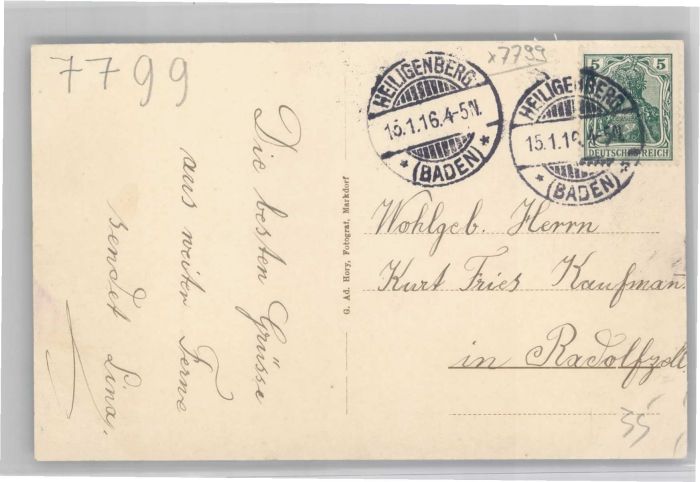 7799
x7799
HEILIGENBERG
15.1.16.4-5N.
* (BADEN) *
HEILIGENBERG
15.1.16.4-5N.
* (BADEN) *
5 5
DEUTSCHES REICH
Die besten Grüsse
aus weiter Ferne
sendet Lina.
G. Ad. Hory, Fotograf, Markdorf
Wohlgeb. Herrn
Kurt Fries Kaufmann
in Radolfzell
35